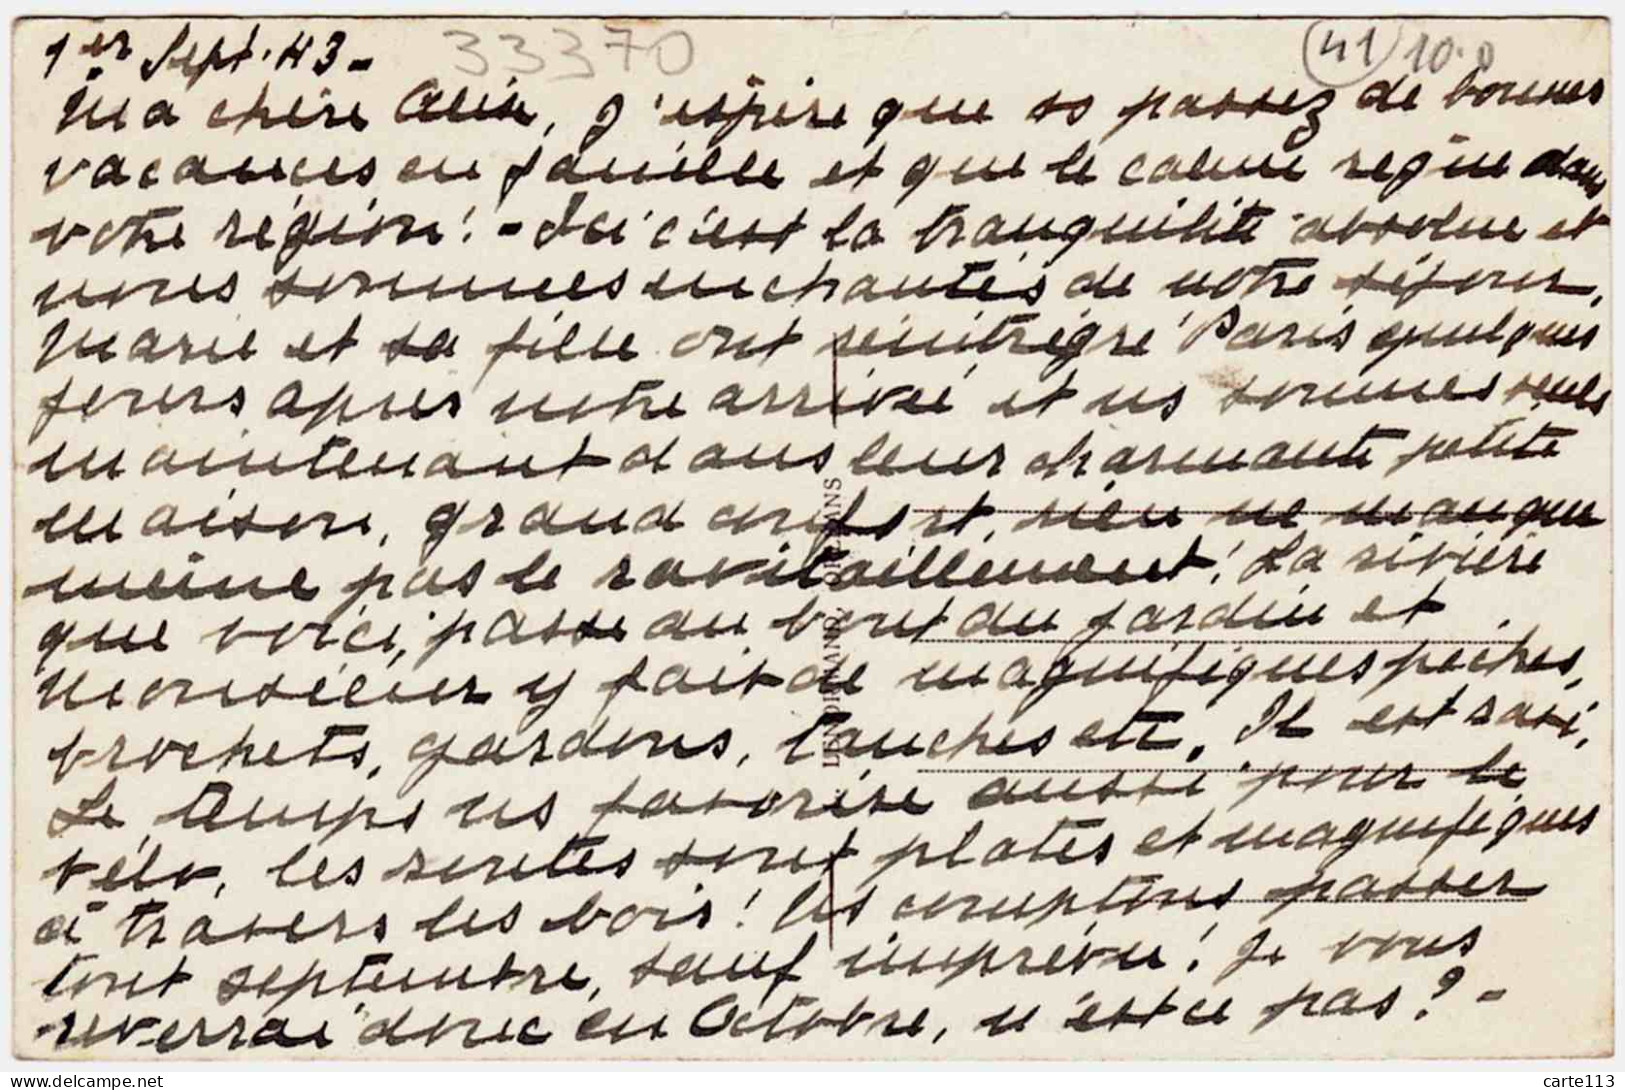 33370
41 10.0
1er Sept. 43 -
Ma chère Alice, J'espère que vs passez de bonnes
vacances en famille et que le calme règne dans
votre région! - Ici c'est la tranquilité absolue et
nous sommes enchantés de notre séjour.
Marie et sa fille ont réintrégré Paris quelques
jours après notre arrivée et ns sommes seuls
maintenant dans leur charmante petite
maison, grand confort, rien ne manque
meme pas le ravitaillement! La rivière
que voici, passe au bout du jardin et
Monsieur y fait de magnifiques pêches,
brochets, gardons, tanches etc. Il est ravi.
Le temps ns favorise aussi pour le
vélo, les routes sont plates et magnifiques
à travers les bois! Ns comptons passer
tout septembre, sauf imprévu! Je vous
reverrai donc en Octobre, n'est ce pas? -
ORLÉANS
carte113